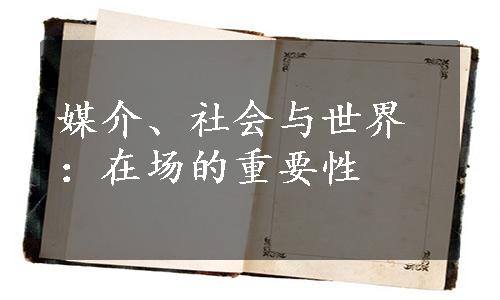 媒介、社会与世界
：在场的重要性